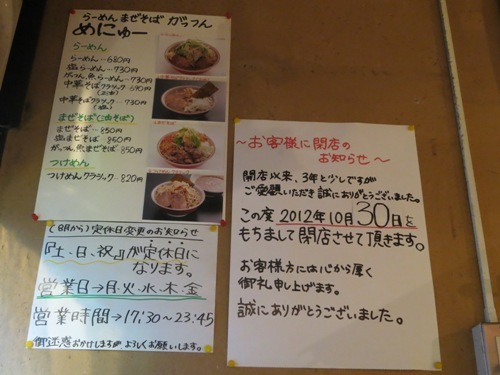 らーめん まぜそば ガッつん
めにゅー
らーめん
らーめん…680円
塩らーめん…730円
がっつん魚らーめん…730円
中華そばクラシック…690円
(正油)
中華そばクラシック…730円
(塩)
まぜそば(上油そば)
まぜそば…850円
塩まぜそば…850円
がっつん魚まぜそば…850円
つけめん
つけめんクラシック…820円
(8月から)定休日変更のお知らせ
『土、日、祝』が定休日に
なります。
営業日→月.火.水.木.金
営業時間→17:30～23:45
御迷惑おかけしますが よろしくお願いします。
～お客様に閉店の
お知らせ～
開店以来、3年と少しですが
ご愛顧いただき誠にありがとうございました。
この度 2012年10月30日を
もちまして閉店させて頂きます。
お客様方には心から厚く
御礼申し上げます。
誠にありがとうございました。